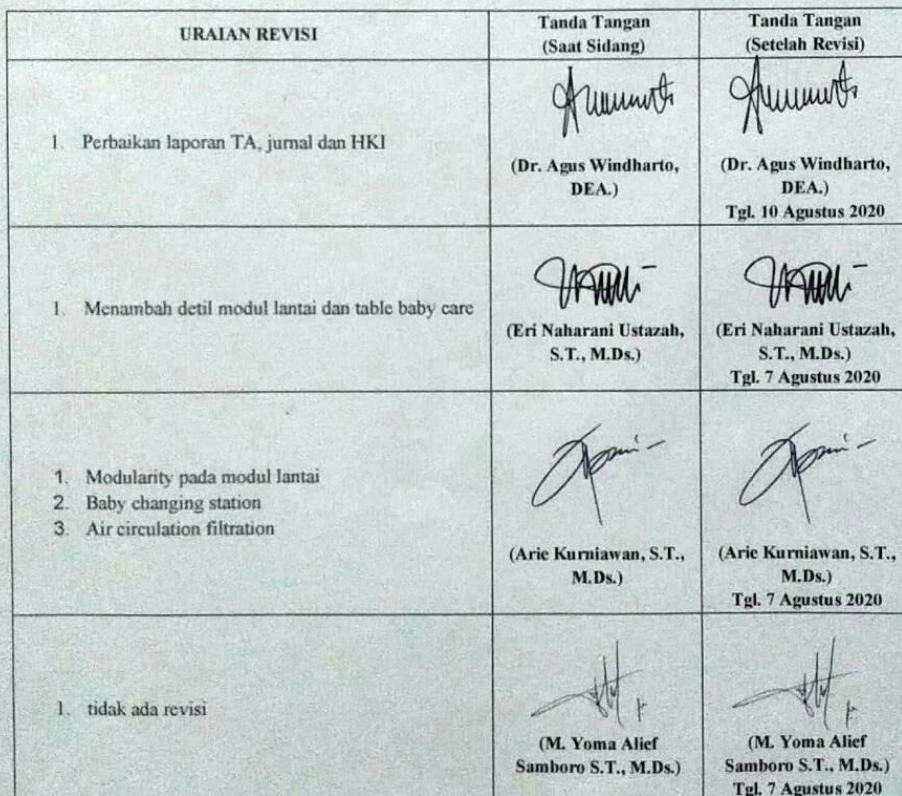 URAIAN REVISI
Tanda Tangan
(Saat Sidang)
Tanda Tangan
(Setelah Revisi)
1. Perbaikan laporan TA, jurnal dan HKI
(Dr. Agus Windharto,
DEA.)
(Dr. Agus Windharto,
DEA.)
Tgl. 10 Agustus 2020
1. Menambah detil modul lantai dan table baby care
(Eri Naharani Ustazah,
S.T., M.Ds.)
(Eri Naharani Ustazah,
S.T., M.Ds.)
Tgl. 7 Agustus 2020
1. Modularity pada modul lantai
2. Baby changing station
3. Air circulation filtration
(Arie Kurniawan, S.T.,
M.Ds.)
(Arie Kurniawan, S.T.,
M.Ds.)
Tgl. 7 Agustus 2020
1. tidak ada revisi
(M. Yoma Alief
Samboro S.T., M.Ds.)
(M. Yoma Alief
Samboro S.T., M.Ds.)
Tgl. 7 Agustus 2020